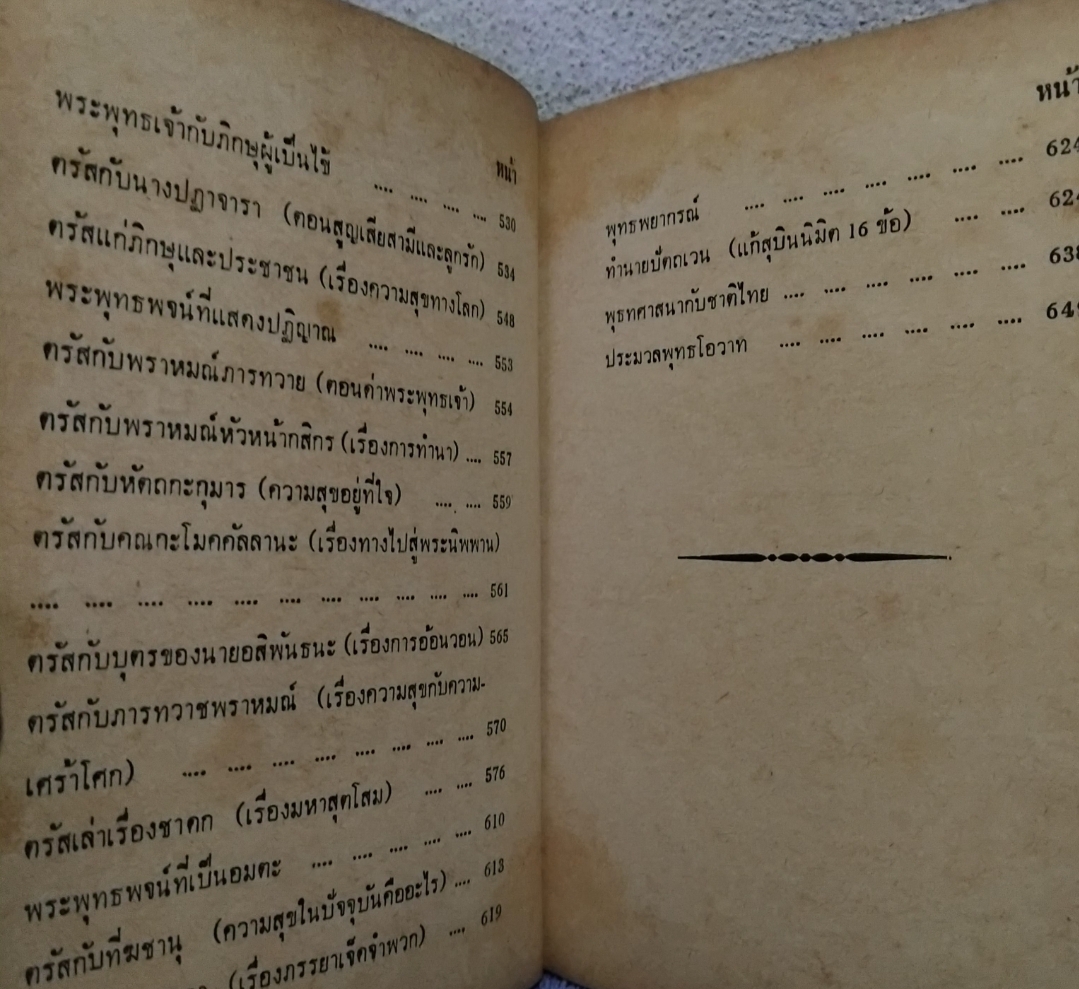 หน้า
พระพุทธเจ้ากับภิกษุผู้เป็นไข้ .... .... .... .... 530
ตรัสกับนางปฏาจารา (ตอนสูญเสียสามีและลูกรัก) 534
ตรัสแก่ภิกษุและประชาชน (เรื่องความสุขทางโลก) 548
พระพุทธพจน์ที่แสดงปฏิญาณ .... .... .... .... 553
ตรัสกับพราหมณ์ภารทวาย (ตอนด่าพระพุทธเจ้า) 554
ตรัสกับพราหมณ์หัวหน้ากสิกร (เรื่องการทำนา) .... 557
ตรัสกับหัตถกะกุมาร (ความสุขอยู่ที่ใจ) .... .... 559
ตรัสกับคณกะโมคคัลลานะ (เรื่องทางไปสู่พระนิพพาน)
.... .... .... .... .... .... .... .... .... .... .... 561
ตรัสกับบุตรของนายอสิพันธนะ (เรื่องการอ้อนวอน) 565
ตรัสกับภารทวาชพราหมณ์ (เรื่องความสุขกับความ-
เศร้าโศก) .... .... .... .... .... .... .... 570
ตรัสเล่าเรื่องชาดก (เรื่องมหาสุตโสม) .... .... 576
พระพุทธพจน์ที่เป็นอมตะ .... .... .... .... .... 610
ตรัสกับทีฆชานุ (ความสุขในปัจจุบันคืออะไร) .... 613
(เรื่องภรรยาเจ็ดจำพวก) .... 619
หน้า
พุทธพยากรณ์ .... .... .... .... .... .... .... 624
ทำนายปัตถเวน (แก้สุบินนิมิต 16 ข้อ) .... .... 624
พุธทศาสนากับชาติไทย .... .... .... .... .... .... 638
ประมวลพุทธโอวาท .... .... .... .... .... .... 649